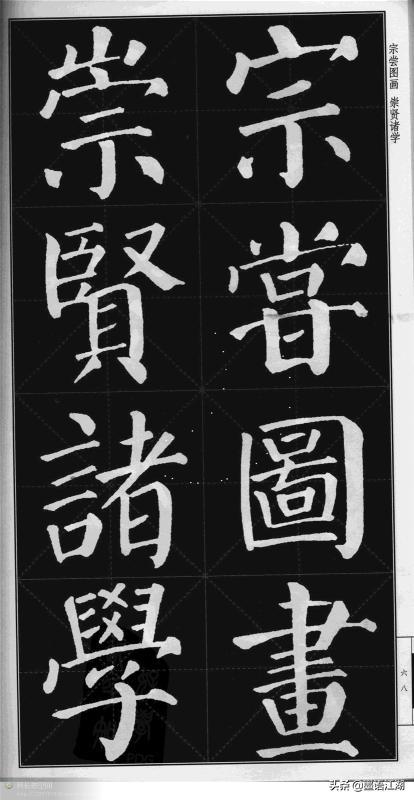 宗尝图画 崇贤诸学
宗甞圖畫
崇賢諸學
六八
头条@墨语江湖